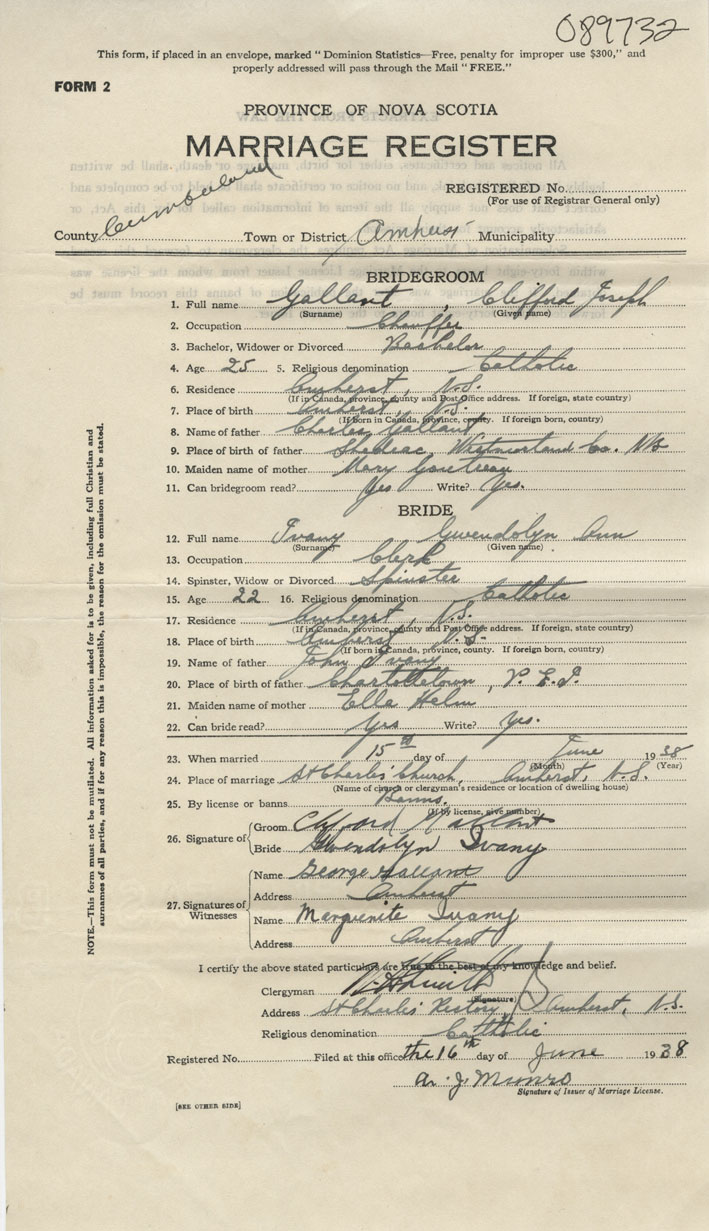 089732
This form, if placed in an envelope, marked "Dominion Statistics—Free, penalty for improper use $300," and
properly addressed will pass through the Mail "FREE."
FORM 2
PROVINCE OF NOVA SCOTIA
MARRIAGE REGISTER
REGISTERED No.
(For use of Registrar General only)
County Cumberland Town or District Amherst Municipality
BRIDEGROOM
1. Full name Gallant, Clifford Joseph
(Surname) (Given name)
2. Occupation Chauffer
3. Bachelor, Widower or Divorced Bachelor
4. Age 25 5. Religious denomination Catholic
6. Residence Amherst, N.S.
(If in Canada, province, county and Post Office address. If foreign, state country)
7. Place of birth Amherst, N.S.
(If born in Canada, province, county. If foreign born, country)
8. Name of father Charles Gallant
9. Place of birth of father Shediac, Westmorland Co. NB
10. Maiden name of mother Mary Goutreau
11. Can bridegroom read? Yes Write? Yes.
BRIDE
12. Full name Ivany Gwendolyn Ann
(Surname) (Given name)
13. Occupation Clerk
14. Spinster, Widow or Divorced Spinster
15. Age 22 16. Religious denomination Catholic
17. Residence Amherst, N.S.
(If in Canada, province, county and Post Office address. If foreign, state country)
18. Place of birth Amherst N.S.
(If born in Canada, province, county. If foreign born, country)
19. Name of father John Ivany
20. Place of birth of father Charlottetown, P.E.I.
21. Maiden name of mother Ella Helm
22. Can bride read? Yes Write? Yes.
23. When married 15th day of June 1938
(Month) (Year)
24. Place of marriage St Charles' Church, Amherst, N.S.
(Name of church or clergyman's residence or location of dwelling house)
25. By license or banns Banns.
(If by license, give number)
26. Signature of Groom Clifford Gallant
Bride Gwendolyn Ivany
27. Signatures of Witnesses Name George Gallant
Address Amherst
Name Marguerite Ivany
Address Amherst
I certify the above stated particulars are true to the best of my knowledge and belief.
Clergyman
(Signature)
Address St Charles Rectory Amherst, N.S.
Religious denomination Catholic
Registered No. Filed at this office the 16th day of June 1938
A. J. Munro
Signature of Issuer of Marriage License.
[SEE OTHER SIDE]
NOTE.—This form must not be mutilated. All information asked for is to be given, including full Christian and
surnames of all parties, and if for any reason this is impossible, the reason for the omission must be stated.